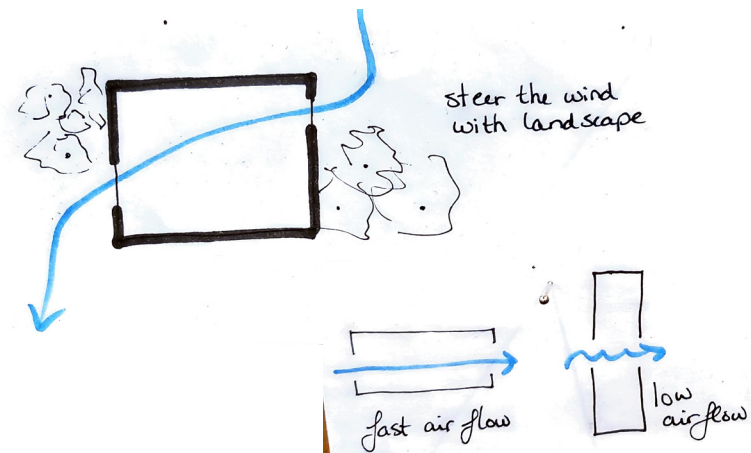 steer the wind
with landscape
fast air flow
low
air flow